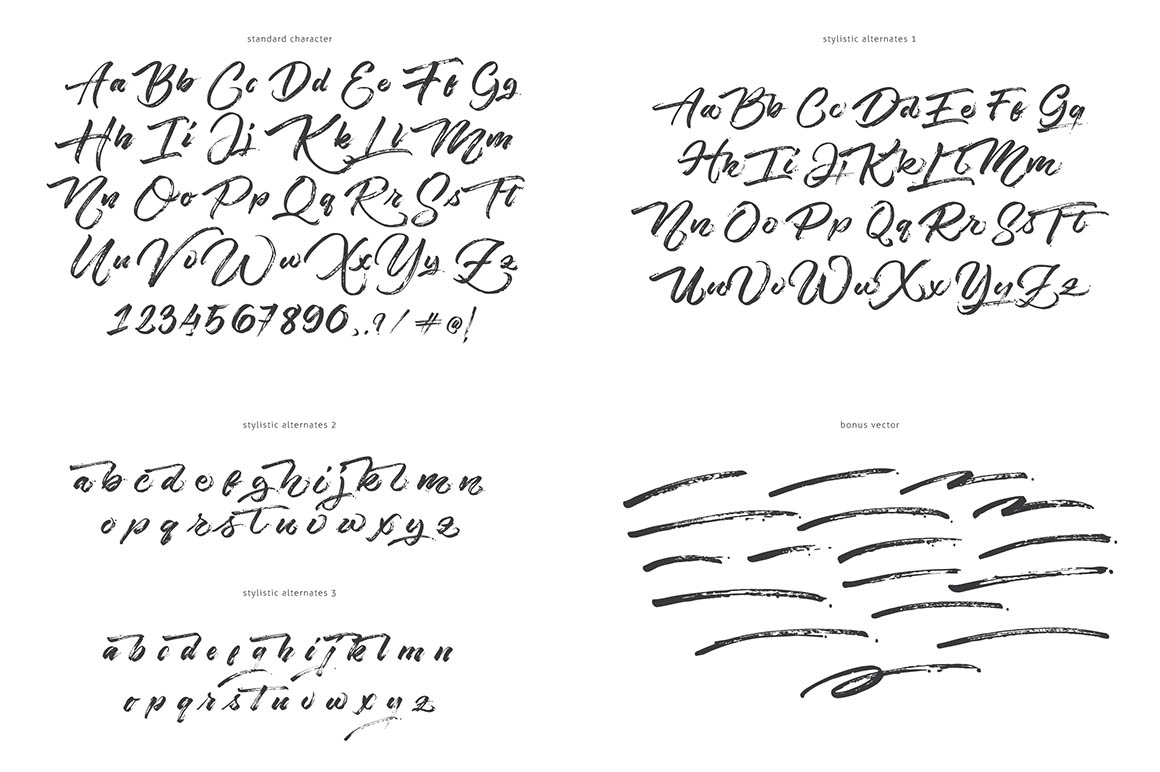 standard character
Aa Bb Cc Dd Ee Ff Gg
Hh Ii Jj Kk Ll Mm
Nn Oo Pp Qq Rr Ss Tt
Uu Vv Ww Xx Yy Zz
1234567890,.?/#@!
stylistic alternates 1
Aa Bb Cc Dd Ee Ff Gg
Hh Ii Jj Kk Ll Mm
Nn Oo Pp Qq Rr Ss Tt
Uu Vv Ww Xx Yy Zz
stylistic alternates 2
a b c d e f g h i j k l m n
o p q r s t u v w x y z
stylistic alternates 3
a b c d e f g h i j k l m n
o p q r s t u v w x y z
bonus vector